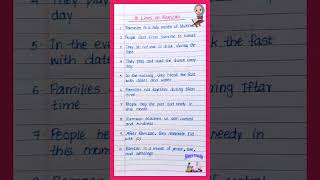 10 Lines on Ramzan
1 Ramzan is a holy month of Muslims
2 People fast from sunrise to sunset
3 They do not eat or drink during the fast
4 They pray and read the Quran every day
5 In the evening, they break the fast
with dates and water
6 Families eat together during Iftar
time
7 People help the poor and needy in
this month
8 Ramzan teaches us self control
and kindness
9 After Ramzan, they celebrate Eid
with joy
10 Ramzan is a month of peace, love,
and blessings